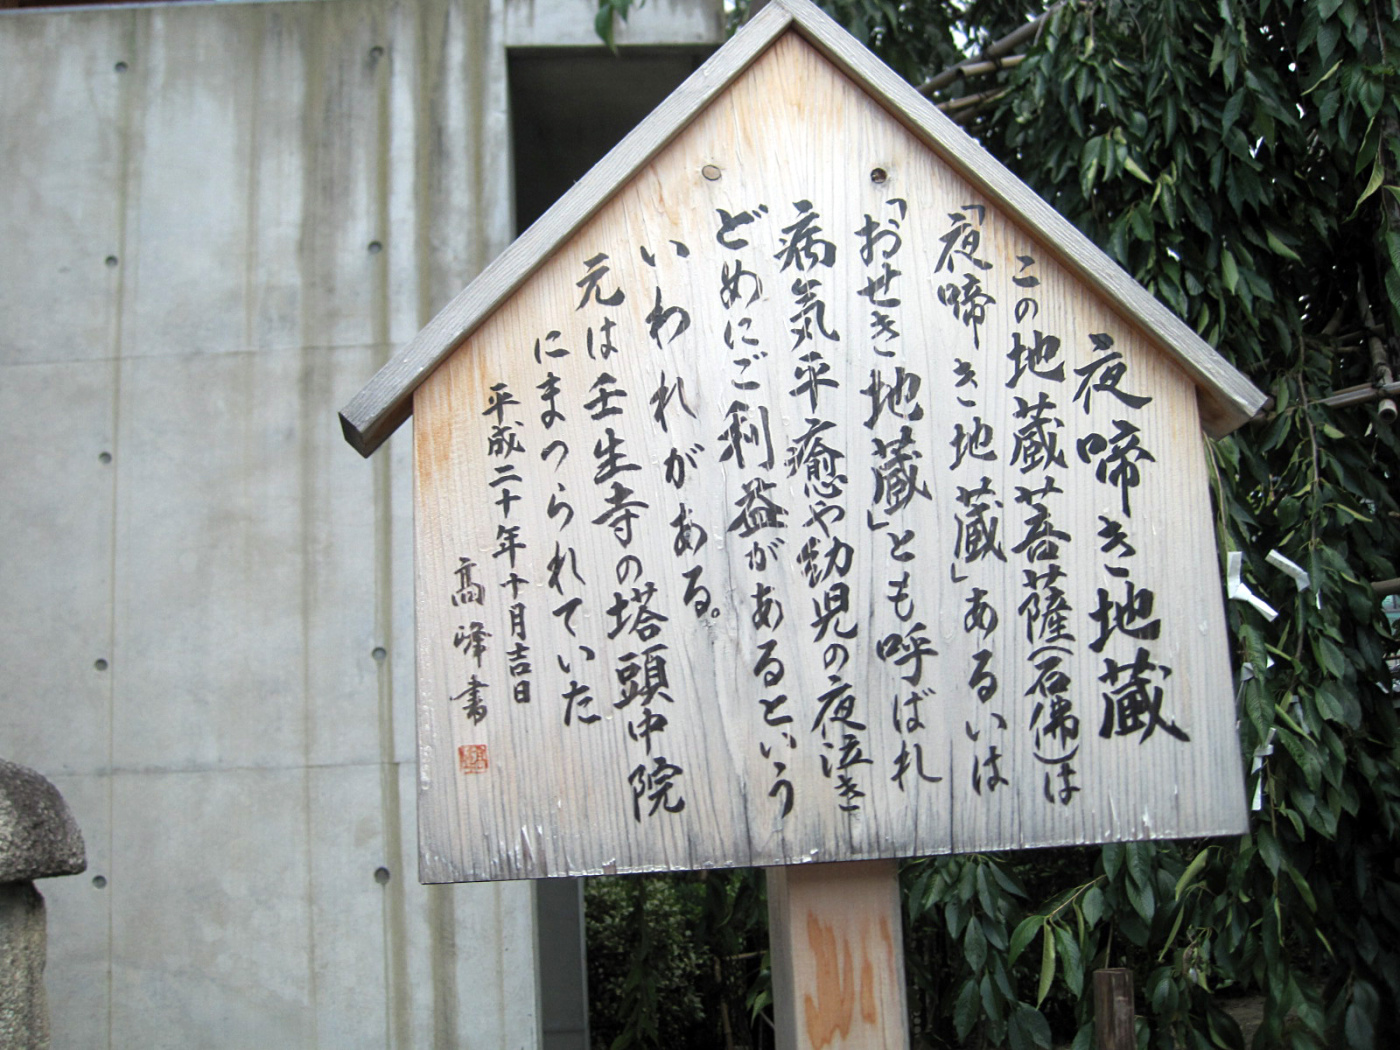 夜啼き地蔵
この地蔵菩薩(石佛)は
「夜啼き地蔵」あるいは
「おせき地蔵」とも呼ばれ
病気平癒や幼児の夜泣き
どめにご利益があるという
いわれがある。
元は壬生寺の塔頭中院
にまつられていた
平成二十年十月吉日
高峰書